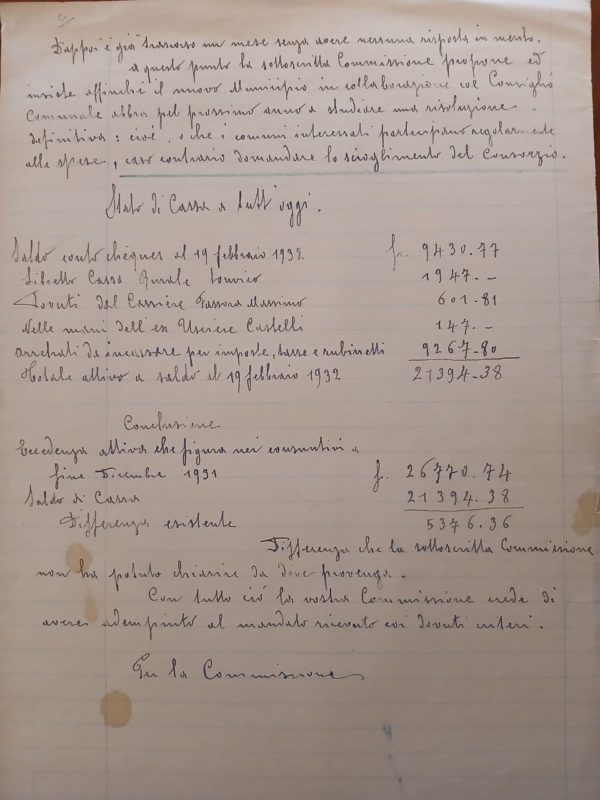 Dappoi è già trascorso un mese senza avere nessuna risposta in merito.
a questo punto la sottoscritta Commissione propone ed
insiste affinchè il nuovo Municipio in collaborazione col Consiglio
Comunale abbia pel prossimo anno a studiare una risoluzione
definitiva: cioè, o che i comuni interessati partecipano regolarmente
alle spese, caso contrario domandare lo scioglimento del Consorzio.
Stato di Cassa a tutt'oggi.
Saldo conto chèques al 19 febbraio 1932 fr. 9430.77
Libretto Cassa Rurale 1947.-
Dovuti dal Cassiere Massimo 601.81
Nelle mani dell'ex Usciere Castelli 147.-
Arretrati da incassare per imposte, tasse e rubinetti 9267.80
Totale attivo a saldo al 19 febbraio 1932 21394.38
Conclusione
Eccedenza attiva che figura nei consuntivi a
fine Dicembre 1931 f. 26770.74
Saldo di Cassa 21394.38
Differenza esistente 5376.36
Differenza che la sottoscritta Commissione
non ha potuto chiarire da dove provenga.
Con tutto ciò la vostra Commissione crede di
avere adempinto al mandato ricevuto coi dovuti criteri.
Per la Commissione